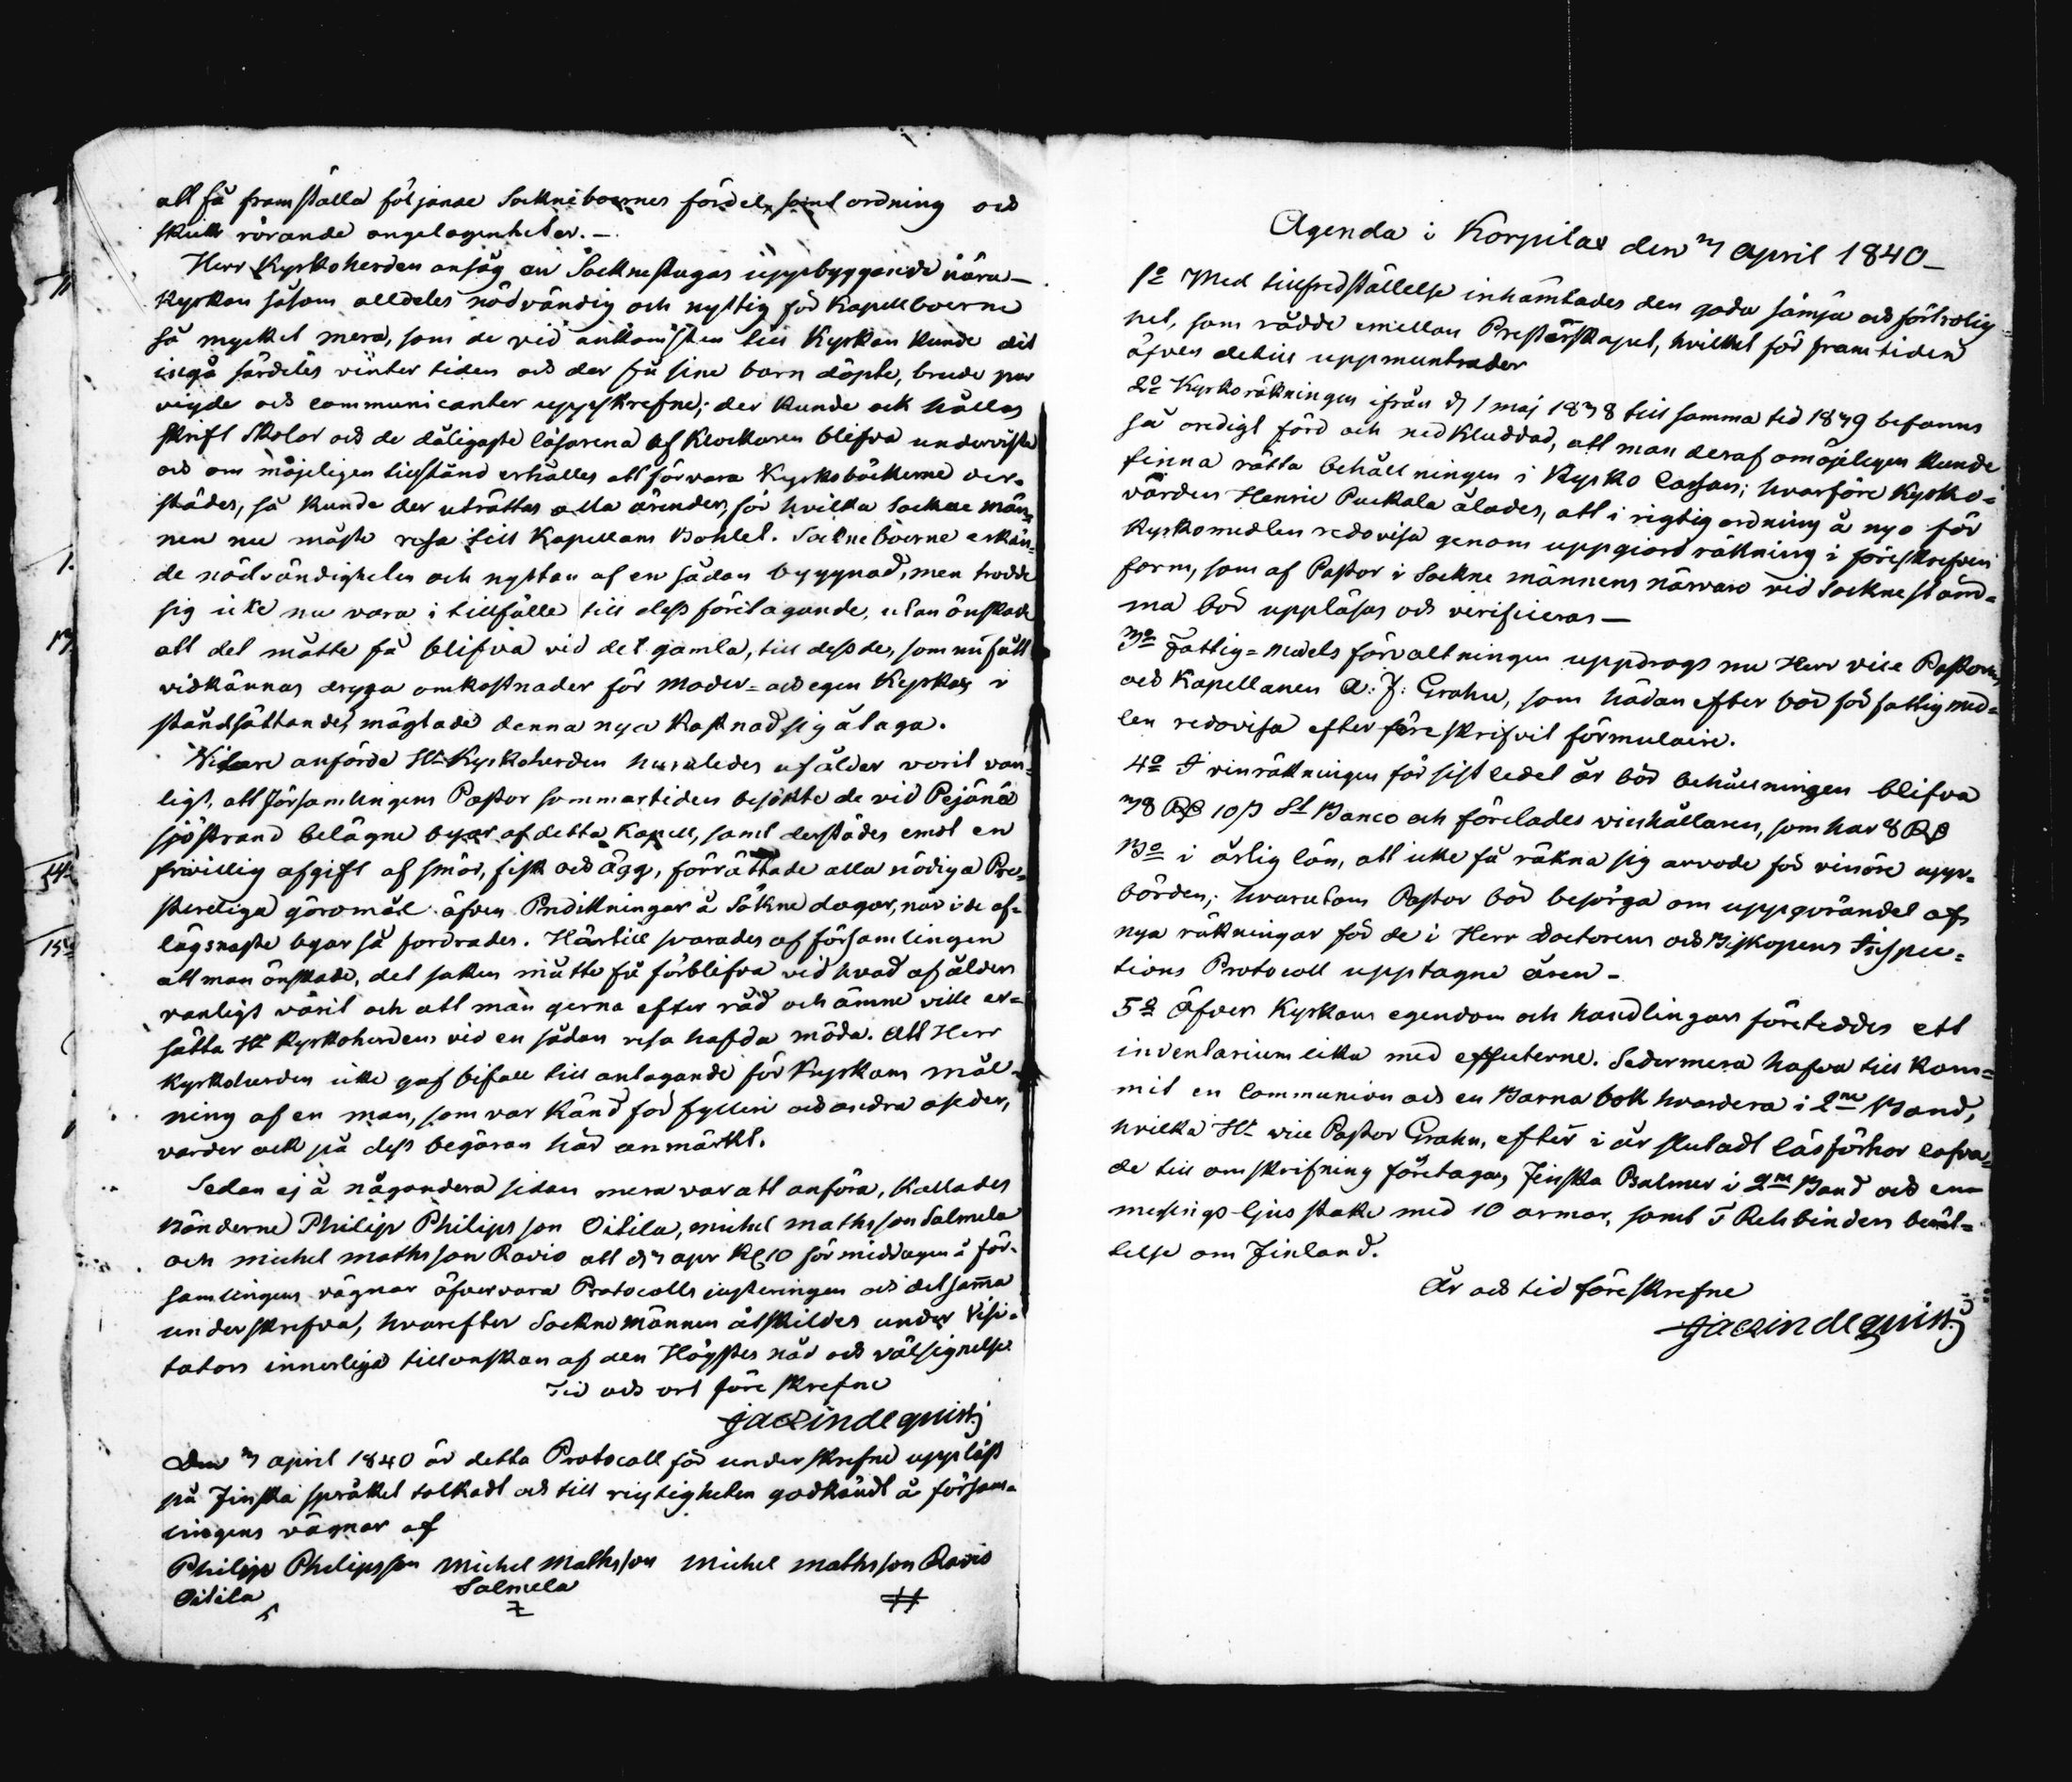 att få framställa följande Sockneboernes fördel, samt ordning och
skick rörande angelägenheter.—
Herr Kyrkoherden ansåg en Socknestugas uppbyggande nära
Kyrkan såsom alldeles nödvändig och nyttig för Kapellboerne
så mycket mera, som de vid ankomsten till Kyrkan kunde dit
ingå särdeles vinter tiden och der få sine barn döpte, brude par
vigde och communicanter uppskrefne; der kunde ock hållas
skrift Skolor och de dåligaste läsarena af Klockaren blifva underviste
och om möjeligen tillstånd erhålles att förvara Kyrkoböckerne der-
städes, så kunde der uträttas alla ärender, för hvilka Sockne män-
nen nu måste resa till Kapellans Bohlet. Sockneboerne erkän-
de nödvändigheten och nyttan af en sådan byggnad, men trodde
sig icke nu vara i tillfälle till dess företagande, utan önskade
att det måtte få blifva vid det gamla, till dess de, som nu fått
vidkännas dryga omkostnader för Moder- och egen Kyrkas i
ståndsättande, mägtade denna nya Kostnad sig åtaga.
Widare anförde Hr Kyrkoherden huruledes af ålder varit van-
ligt, att församlingens Pastor sommartiden besökte de vid Pejänä
sjöstrand belägne byar af detta Kapell, samt derstädes emot en
frivillig afgift af smör, fisk och ägg, förrättade alla nödiga Pre-
sterliga göromål äfven Predikningar å Söknedagar, när i de af-
lägsnaste byar så fordrades. Härtill svarades af församlingen
att man önskade, det saken måtte få förblifva vid hvad af ålder
vanligt varit och att man gerna efter råd och ämne ville er-
sätta Hr Kyrkoherdens vid en sådan resa hafda möda. Att Herr
Kyrkoherden icke gaf bifall till antagande för Kyrkans mål-
ning af en man, som var Känd för fylleri och andra oseder,
varder ock på dess begäran här anmärkt.
Sedan ej å någondera sidan mera var att anföra, kallades
Bönderne Philip Philipsson Oitila, Michel Mathsson Salmela
och Michel Mathsson Ravio att d 3 apr Kl 10 förmiddagen å för-
samlingens vägnar öfvervara Protocolls justeringen och det samma
underskrifva, hvarefter Sockne männen åtskildes under Visi-
tators innerliga tillönskan af den Högstes nåd och välsignelse
Tid och ort föreskrefne
Jac Lindequist
Den 3 april 1840 är detta Protocoll för underskrefne uppläst
på Finska språket tolkadt och till rigtigheten godkändt å försam-
lingens vägnar af
Philip Philipsson Michel Mathsson Michel Mathsson Ravio
Oitila Salmela
Agenda i Korpilax den 3 April 1840—
1o Med tillfredställelse inhämtades den goda sämja och förtrolig-
het, som rådde emellan Presterskapet, hvilket för framtiden
äfven dertill uppmuntrades
2o Kyrkoräkningen ifrån d 1 maj 1838 till samma tid 1839 befanns
så oredigt förd och nedkluddad, att man deraf omöjeligen kunde
finna rätta behållningen i Kyrko Cassan; hvarföre Kyrko-
värden Henric Puckala ålades, att i rigtig ordning å nyo för
Kyrkomedlen redovisa genom uppgiord räkning i föreskrefven
form, som af Pastor i Sockne männens närvaro vid Sockne stäm-
ma bör uppläsas och verificeras—
3o Fattig-medels förvaltningen uppdrogs nu Herr vice Pastorn
och Kapellanen A: J: Grahn, som hädan efter bör för fattig med-
len redovisa efter föreskrifvit formulaire.
4o I vinräkningen för sist ledet år bör behållningen blifva
38 RD 10 s St Banco och förelades vinhållaren, som har 8 RD
Bo i årlig lön, att icke få räkna sig arvode för vinöre upp-
börden; hvarutom Pastor bör besörga om uppgörandet af
nya räkningar för de i Herr Doctorens och Biskopens Inspec-
tions Protocoll upptagne åren—
5o Öfver Kyrkans egendom och handlingar företeddes ett
inventarium lika med effecterne. Sedermera hafva till kom-
mit en Communion och en Barna bok hvardera i 2ne Band,
hvilka Hr vice Pastor Grahn, efter i år slutadt läsförhör lofva-
de till omskrifning företaga, Finska Psalmer i 2ne Band och en
messings ljusstake med 10 armar, samt v Rehbinders berät-
telse om Finland.
År och tid föreskrefne
Jac Lindequist